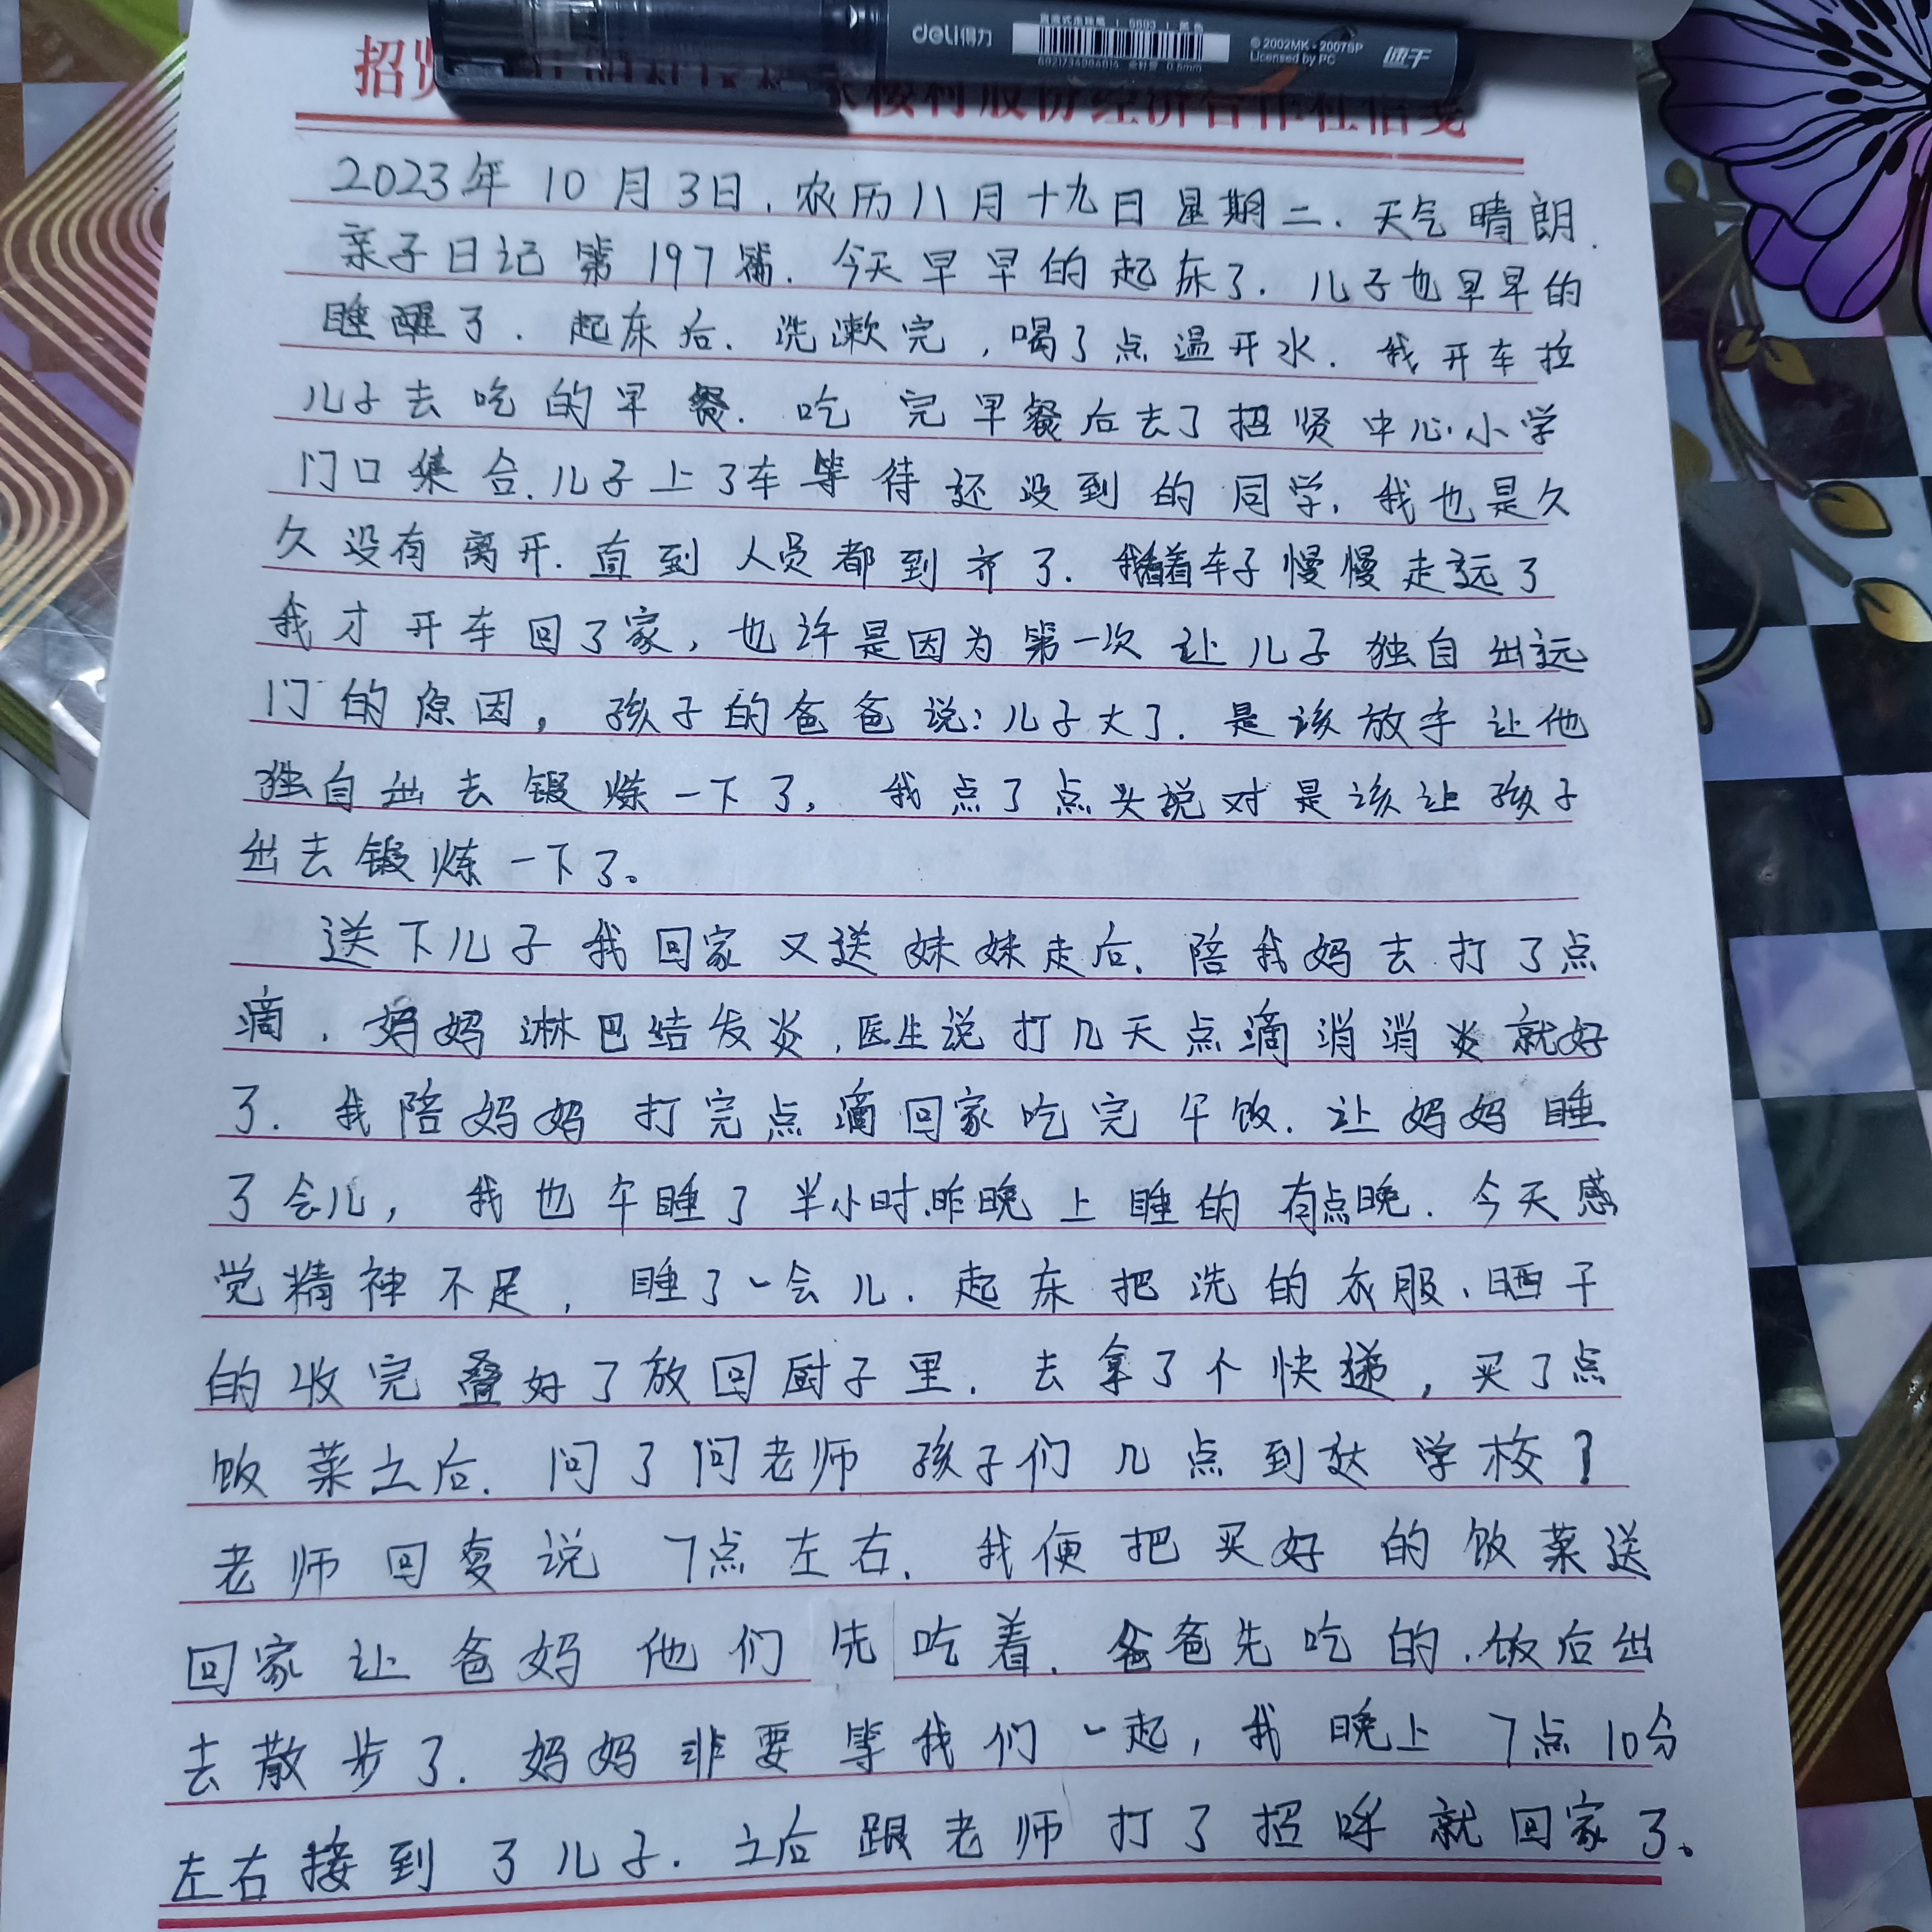 deli得力
6921734964014 全针管 0.5mm
© 2002MK-2007SP
Licensed by PC
速干
招贤
楼村股份经济合作社信笺
2023年10月3日.农历八月十九日星期二.天气晴朗.
亲子日记第197篇.今天早早的起床了.儿子也早早的
睡醒了.起床后.洗漱完,喝了点温开水.我开车拉
儿子去吃的早餐.吃完早餐后去了招贤中心小学
门口集合.儿子上了车等待还没到的同学,我也是久
久没有离开.直到人员都到齐了.我看着车子慢慢走远了
我才开车回了家,也许是因为第一次让儿子独自出远
门的原因,孩子的爸爸说:儿子大了.是该放手让他
独自出去锻炼一下了,我点了点头说对是该让孩子
出去锻炼一下了。
送下儿子我回家又送妹妹走后.陪我妈去打了点
滴.妈妈淋巴结发炎,医生说打几天点滴消消炎就好
了.我陪妈妈打完点滴回家吃完午饭.让妈妈睡
了会儿,我也午睡了半小时.昨晚上睡的有点晚.今天感
觉精神不足,睡了一会儿.起床把洗的衣服.晒干
的收完叠好了放回厨子里.去拿了个快递,买了点
饭菜之后.问了问老师孩子们几点到达学校?
老师回复说7点左右.我便把买好的饭菜送
回家让爸妈他们先吃着.爸爸先吃的.饭后出
去散步了.妈妈非要等我们一起,我晚上7点10分
左右接到了儿子.之后跟老师打了招呼就回家了。